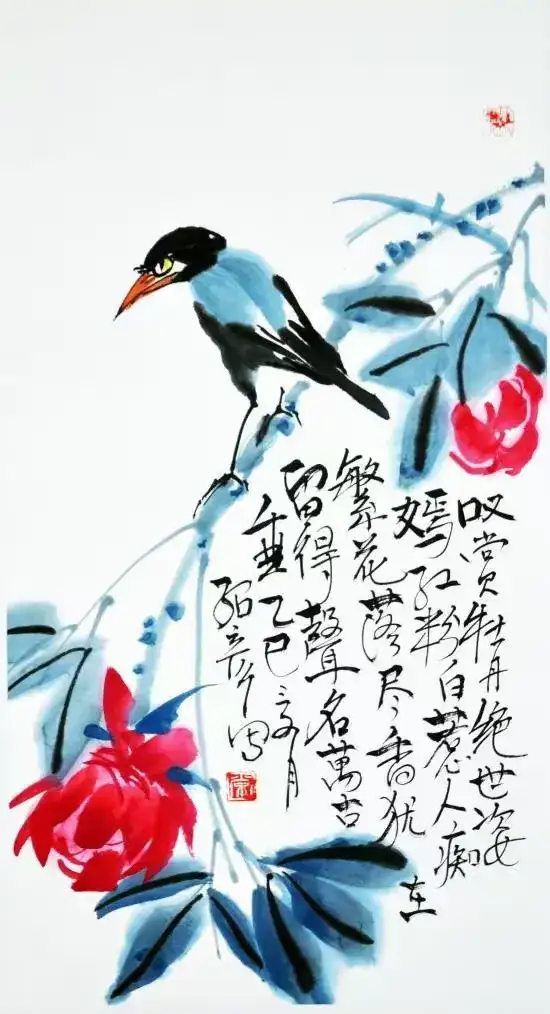 叹赏牡丹绝世姿
嫣红粉白惹人痴
繁花落尽香犹在
留得聲名萬古
垂乙巳夏月
写